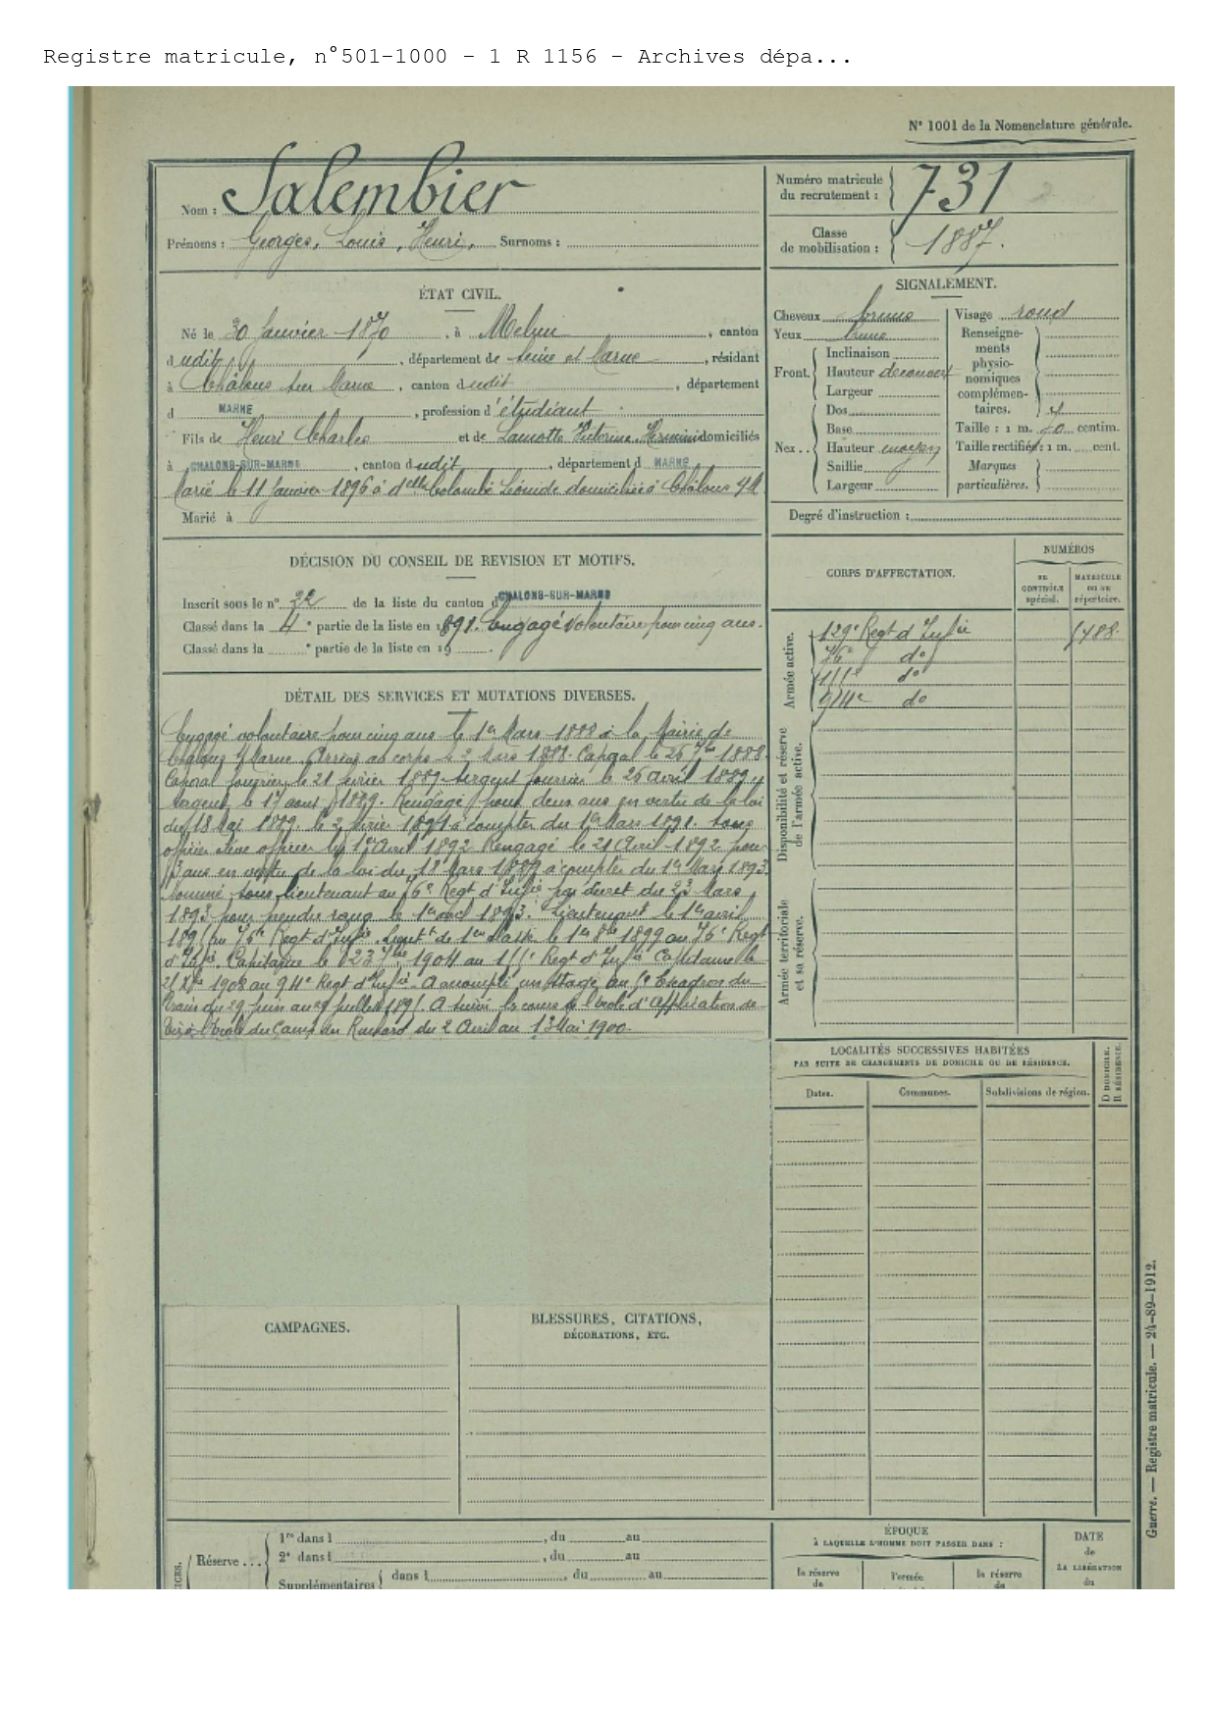 Registre matricule, n°501-1000 - 1 R 1156 - Archives dépa...
N° 1001 de la Nomenclature générale.
Nom : Salembier
Prénoms : Georges, Louis, Henri, Surnoms :
Numéro matricule du recrutement : 731
Classe de mobilisation : 1887.
ÉTAT CIVIL.
Né le 30 Janvier 1870, à Melun, canton
dudit, département de Seine et Marne, résidant
à Châlons sur Marne, canton dudit, département
d MARNE, profession d'étudiant
Fils de Henri Charles et de Lamotte Victorine domiciliés
à CHALONS-SUR-MARNE, canton dudit, département d MARNE
Marié le 11 Janvier 1896 à delle Colombé Léonide domiciliée à Châlons s/M
Marié à
SIGNALEMENT.
Cheveux bruns Visage rond
Yeux
Renseignements physionomiques complémentaires.
Front. Inclinaison
Hauteur découvert
Largeur
Nez.. Dos
Base
Hauteur moyen
Saillie
Largeur
Taille : 1 m. centim.
Taille rectifiée : 1 m. cent.
Marques particulières.
Degré d'instruction :
DÉCISION DU CONSEIL DE REVISION ET MOTIFS.
Inscrit sous le n° 22 de la liste du canton d CHALONS-SUR-MARNE
Classé dans la 4e partie de la liste en 1891. Engagé volontaire pour cinq ans.
Classé dans la e partie de la liste en 19
CORPS D'AFFECTATION.
NUMÉROS
DU CONTRÔLE spécial.
MATRICULE OU AU répertoire.
Armée active.
129e Regt d'Infie
76e do
do
94e do
Disponibilité et réserve de l'armée active.
Armée territoriale et sa réserve.
DÉTAIL DES SERVICES ET MUTATIONS DIVERSES.
Engagé volontaire pour cinq ans le 1er Mars 1888 à la Mairie de
Châlons s/Marne. Arrivé au corps le 2 Mars 1888. Caporal le 26 7bre 1888.
Caporal fourrier le 21 février 1889. Sergent fourrier le 26 avril 1889
Sergent le 17 août 1889. Rengagé pour deux ans en vertu de la loi
du 18 Mai 1889 le 2 à compter du 1er Mars 1891. Sous
officier élève officier le 1er Avril 1892. Rengagé le 21 Avril 1892 pour
3 ans en vertu de la loi du 18 Mars 1889 à compter du 1er Mars 1893.
Nommé sous lieutenant au 76e Regt d'Infie par décret du 23 Mars
1893 pour prendre rang le 1er avril 1893. Lieutenant le 1er avril
au 76e Regt d'Infie. Lieutt de 1ère classe le 1er 8bre 1899 au 76e Regt
d'Infie. Capitaine le 23 7bre 1904 au Regt d'Infie Capitaine le
1908 au 94e Regt d'Infie. A accompli un stage au Escadron du
train du 29 juin au juillet. A suivi les cours de l'école d'Application de
tir à l'école du Camp du Ruchard du 2 Avril au 13 Mai 1900.
LOCALITÉS SUCCESSIVES HABITÉES
PAR SUITE DE CHANGEMENTS DE DOMICILE OU DE RÉSIDENCE.
Dates. Communes. Subdivisions de région. D DOMICILE. R RÉSIDENCE.
CAMPAGNES.
BLESSURES, CITATIONS,
DÉCORATIONS, ETC.
Guerre. — Registre matricule. — 24-89-1912.
Réserve ... 1re dans l , du au
2e dans l , du au
Supplémentaires dans l , du au
ÉPOQUE
À LAQUELLE L'HOMME DOIT PASSER DANS :
la réserve de
l'armée
la réserve de
DATE
de
LA LIBÉRATION
du